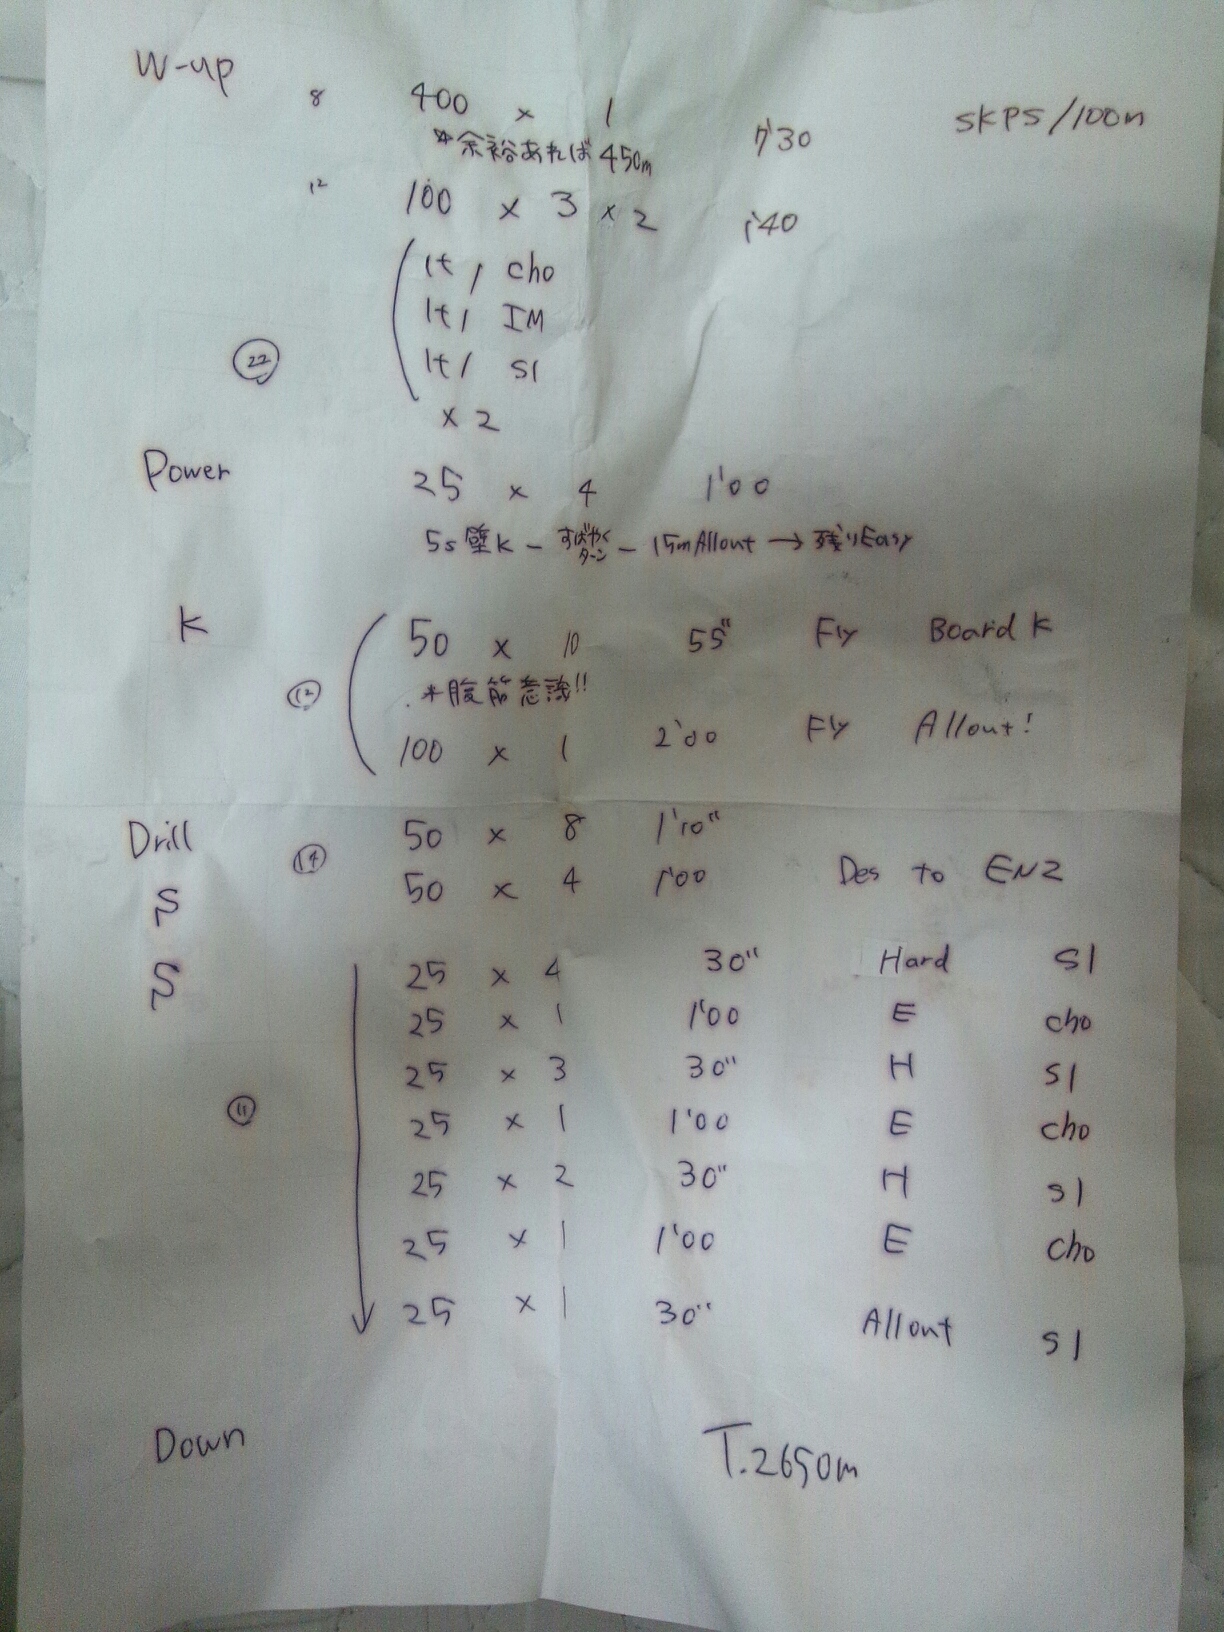 W-up
8 400 × 1 7'30 SKPS/100m
*余裕あれば 450m
12 100 × 3 × 2 1'40
1t / cho
1t / IM
22 1t / S1
× 2
Power 25 × 4 1'00
5s 壁K - すばやくターン - 15m Allout → 残りEasy
K 50 × 10 55" Fly Board K
12 *腹筋意識!!
100 × 1 2'00 Fly Allout!
Drill 50 × 8 1'10"
14
S 50 × 4 1'00 Des to EN2
S 25 × 4 30" Hard S1
25 × 1 1'00 E cho
25 × 3 30" H S1
11 25 × 1 1'00 E cho
25 × 2 30" H S1
25 × 1 1'00 E cho
25 × 1 30" Allout S1
Down T.2650m